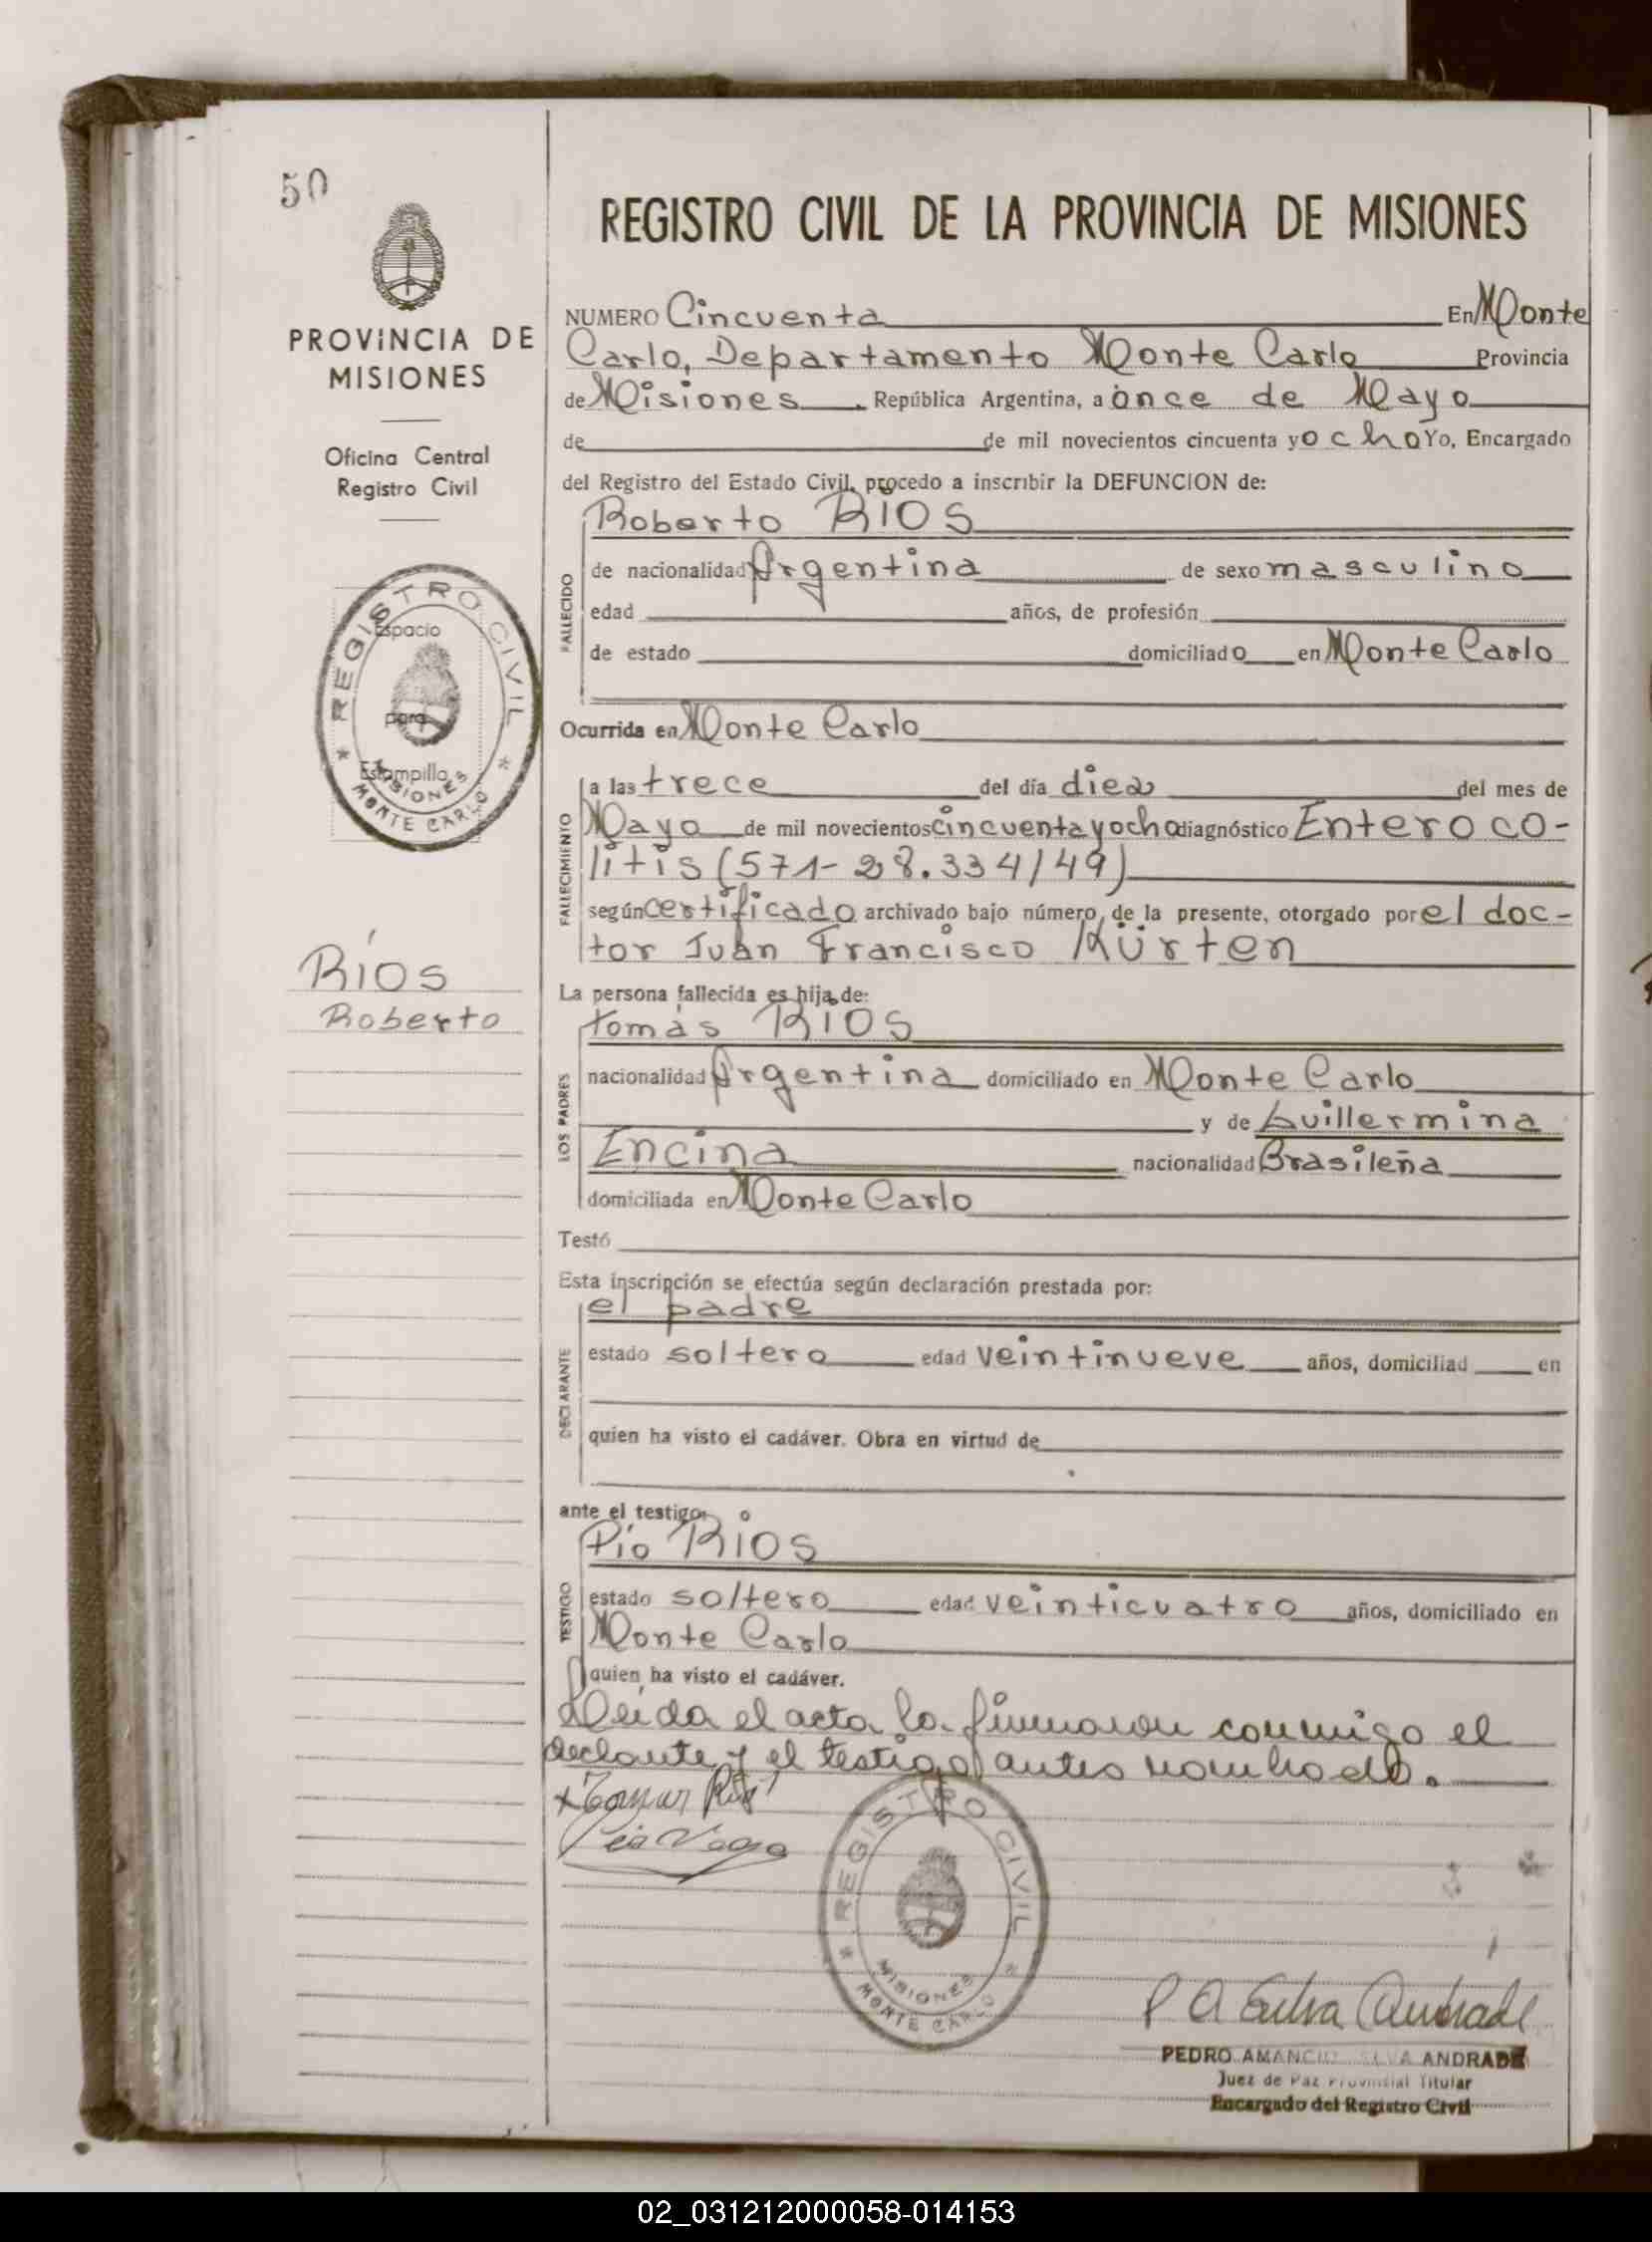 50
PROVINCIA DE
MISIONES
Oficina Central
Registro Civil
REGISTRO CIVIL
Espacio
para
Estampilla
MISIONES
* MONTE CARLO *
RIOS
Roberto
REGISTRO CIVIL DE LA PROVINCIA DE MISIONES
NUMERO Cincuenta En Monte
Carlo, Departamento Monte Carlo Provincia
de Misiones República Argentina, a once de Mayo
de de mil novecientos cincuenta y ocho Yo, Encargado
del Registro del Estado Civil, procedo a inscribir la DEFUNCION de:
FALLECIDO
Roberto RIOS
de nacionalidad Argentina de sexo masculino
edad años, de profesión
de estado domiciliado en Monte Carlo
Ocurrida en Monte Carlo
FALLECIMIENTO
a las trece del día diez del mes de
Mayo de mil novecientos cincuenta y ocho diagnóstico Enteroco-
litis (571-28.334/49)
según certificado archivado bajo número de la presente, otorgado por el doc-
tor Juan Francisco Kürten
La persona fallecida es hija de:
LOS PADRES
Tomás RIOS
nacionalidad Argentina domiciliado en Monte Carlo
y de Guillermina
Encina nacionalidad Brasileña
domiciliada en Monte Carlo
Testó
Esta inscripción se efectúa según declaración prestada por:
DECLARANTE
el padre
estado soltero edad veintinueve años, domiciliad en
quien ha visto el cadáver. Obra en virtud de
ante el testigo
TESTIGO
Pío RIOS
estado soltero edad veinticuatro años, domiciliado en
Monte Carlo
quien ha visto el cadáver.
Leida el acta la firmaron conmigo el
declante y el testigo antes nombrado.
REGISTRO CIVIL
MISIONES
* MONTE CARLO *
P A Silva Andrade
PEDRO AMANCIO SILVA ANDRADE
Juez de Paz Provincial Titular
Encargado del Registro Civil
02_031212000058-014153